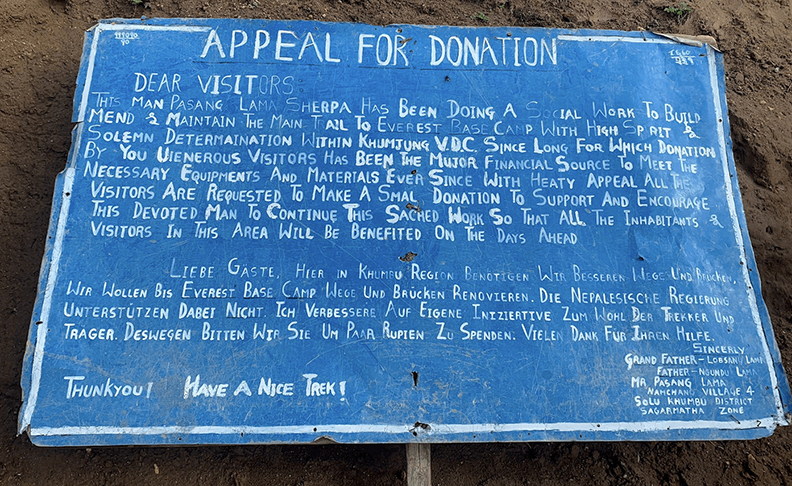 APPEAL FOR DONATION
DEAR VISITORS:
THIS MAN PASANG LAMA SHERPA HAS BEEN DOING A SOCIAL WORK TO BUILD
MEND & MAINTAIN THE MAIN TAIL TO EVEREST BASE CAMP WITH HIGH SPRIT &
SOLEMN DETERMAINATION WITHIN KHUMJUNG V.D.C. SINCE LONG FOR WHICH DONATION
BY YOU UIENEROUS VISITORS HAS BEEN THE MUJOR FINANCIAL SOURCE TO MEET THE
NECESSARY EQUIPMENTS AND MATERIALS EVER SINCE WITH HEATY APPEAL ALL THE
VISITORS ARE REQUESTED TO MAKE A SMALL DONATION TO SUPPORT AND ENCOURAGE
THIS DEVOTED MAN TO CONTINUE THIS SACRED WORK SO THAT ALL THE INHABITANTS &
VISITORS IN THIS AREA WILL BE BENEFITED ON THE DAYS AHEAD
LIEBE GÄSTE, HIER IN KHUMBU REGION BENÖTIGEN WIR BESSEREN WEGE UND BRÜCKEN,
WIR WOLLEN BIS EVEREST BASE CAMP WEGE UND BRÜCKEN RENOVIEREN. DIE NEPALESISCHE REGIERUNG
UNTERSTÜTZEN DABEI NICHT. ICH VERBESSERE AUF EIGENE INIZIERTIVE ZUM WOHL DER TREKKER UND
TRÄGER. DESWEGEN BITTEN WIR SIE UM PAAR RUPIEN ZU SPENDEN. VIELEN DANK FÜR IHREN HILFE.
SINCERLY
GRAND FATHER - LOBSANG LAMA
FATHER - NGUNDU LAMA
MR PASANG LAMA
NAMCHANG VILLAGE 4
SOLU KHUMBU DISTRICT
SAGARMATHA ZONE
THUNKYOU! HAVE A NICE TREK!